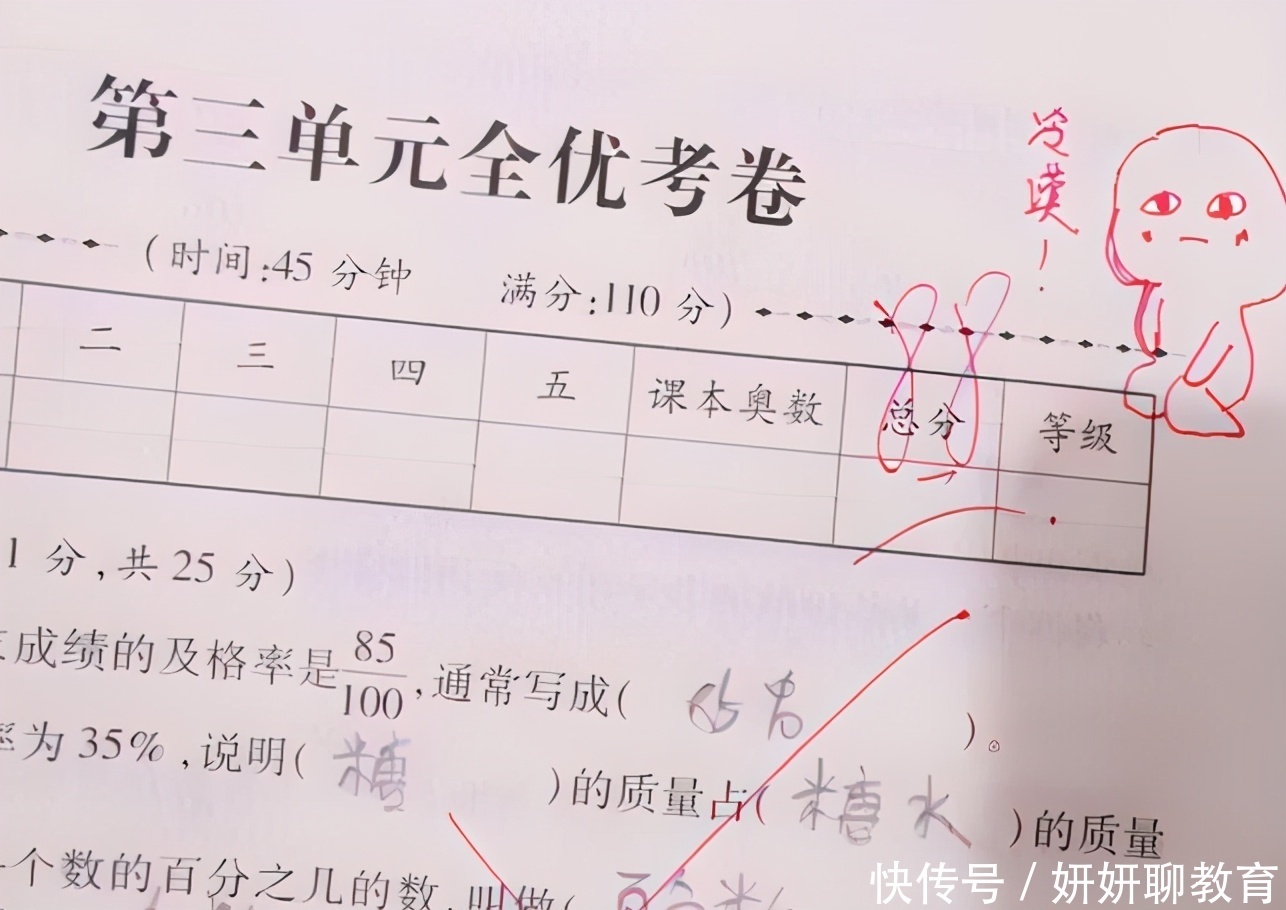 第三单元全优考卷
冷漠!
(时间:45 分钟 满分:110 分)
二 三 四 五 课本奥数 总分 等级
88
1 分,共 25 分)
成绩的及格率是85/100,通常写成( )。
率为 35%,说明(糖)的质量占(糖水)的质量
一个数的百分之几的数,叫做(百分
快传号 / 妍妍聊教育